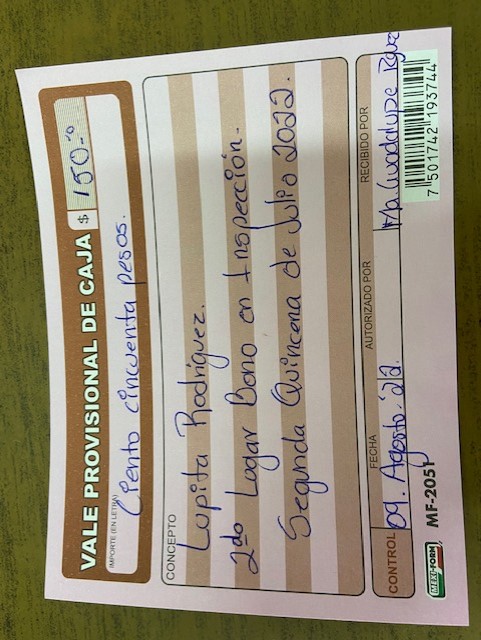 VALE PROVISIONAL DE CAJA $ 150.-⁰⁰
IMPORTE (EN LETRA)
Ciento cincuenta pesos.
CONCEPTO
Lupita Rodríguez.
2do Lugar Bono en Inspección.
Segunda Quincena de Julio 2022.
CONTROL FECHA AUTORIZADO POR RECIBIDO POR
09. Agosto. 22. Ma. Guadalupe
MEXI-FORM MF-2051
7 501742 193744